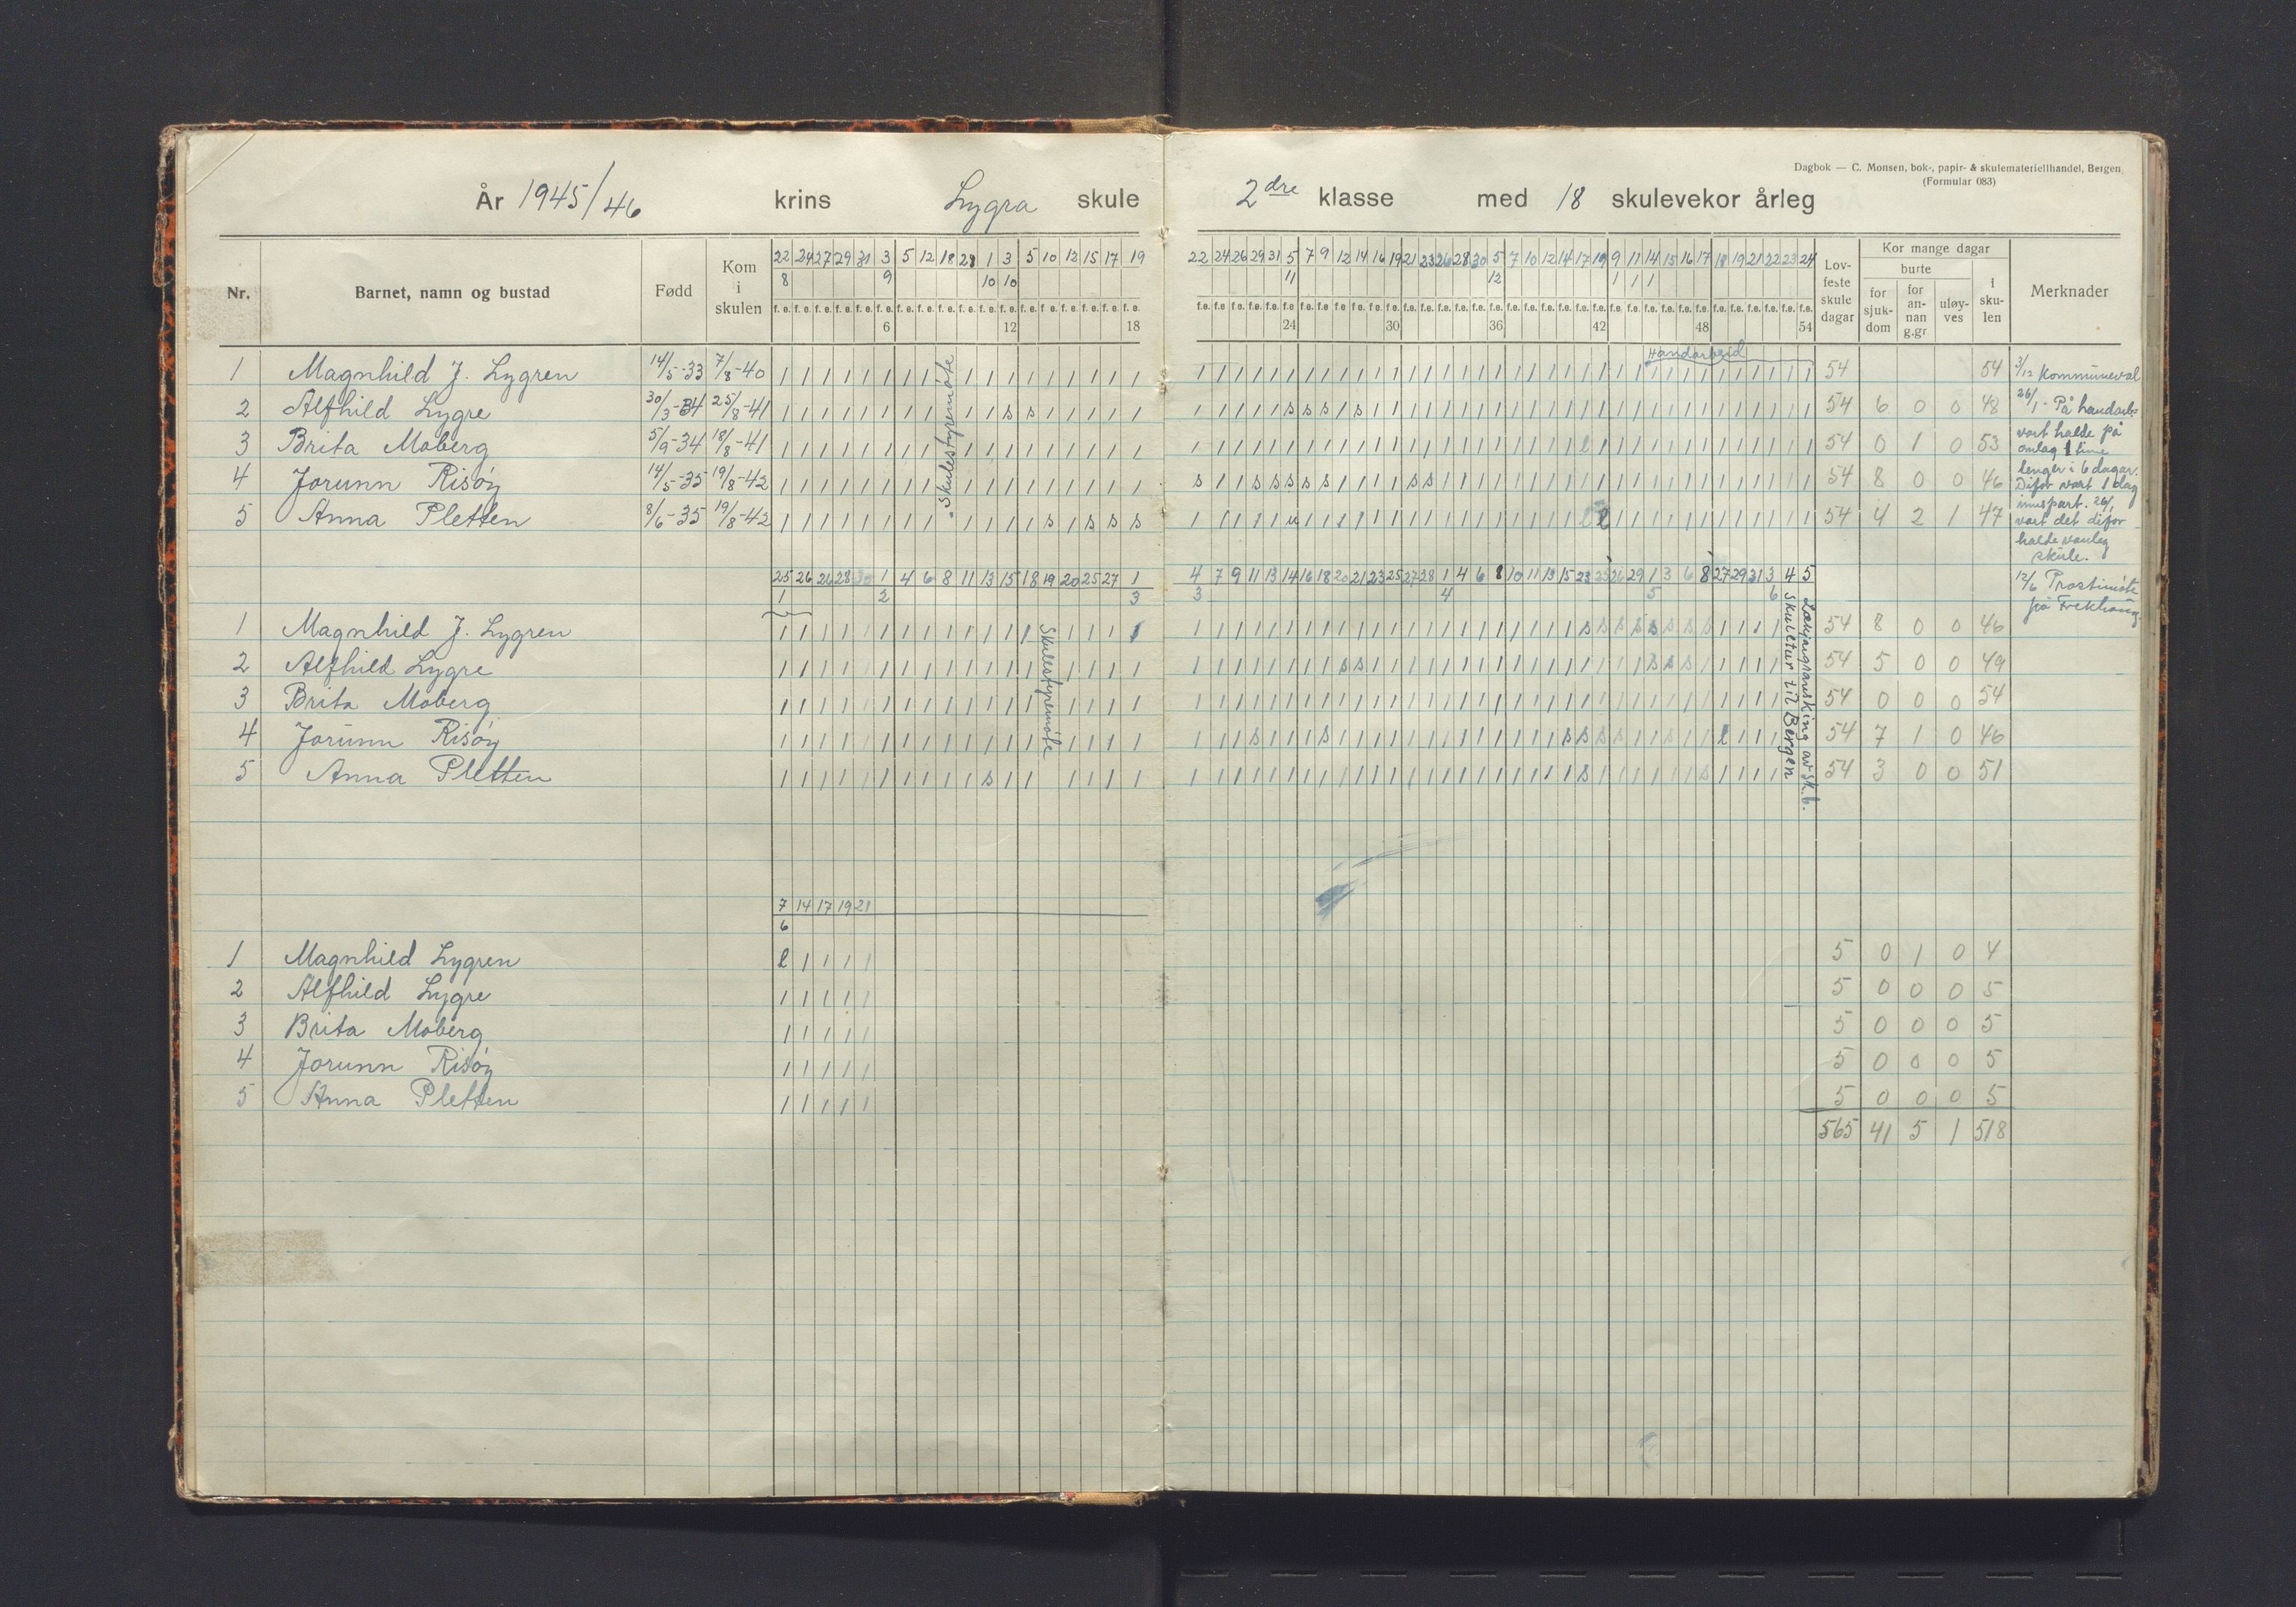 Dagbok — C. Monsen, bok-, papir- & skulemateriellhandel, Bergen
(Formular 083)
År 1945/46 krins Lygra skule 2dre klasse med 18 skulevekor årleg
Nr. Barnet, namn og bustad Fødd Kom i skulen
22 24 27 29 31 3 5 12 18 28 1 3 5 10 12 15 17 19
8 9 10 10
f. e. f. e. f. e. f. e. f. e. f. e. f. e. f. e. f. e. f. e. f. e. f. e. f. e. f. e. f. e. f. e. f. e. f. e.
6 12 18
22 24 26 29 31 5 7 9 12 14 16 19 21 23 26 28 30 5 7 10 12 14 17 19 9 11 14 15 16 17 18 19 21 22 23 24
11 12 1 1 1
24 30 36 42 48 54
Lovfeste skule dagar
Kor mange dagar
burte
for sjukdom
for annan g.gr.
uløyves
i skulen
Merknader
Handarbeid
Skulestyremöte
1 Magnhild J. Lygren 14/5-33 7/8-40 54 54
2 Alfhild Lygre 30/3-34 25/8-41 54 6 0 0 48
3 Brita Moberg 5/9-34 18/8-41 54 0 1 0 53
4 Jorunn Risöy 14/5-35 19/8-42 54 8 0 0 46
5 Anna Pletten 8/6-35 19/8-42 54 4 2 1 47
3/12 Kommuneval
26/1 - På handarb.
vart halde på
omlag 1 time
lenger i 6 dagar.
Difor vart 1 dag
innspart. 26/1
vart det difor
halde vanleg
skule.
12/6 Prostimöte
på
25 26 26 28 30 1 4 6 8 11 13 15 18 19 20 25 27 1
1 2 3
4 7 9 11 13 14 16 18 20 21 23 25 27 28 1 4 6 8 10 11 13 15 23 25 26 29 1 3 6 8 27 29 31 3 4 5
3 4 5 6
Skulestyremöte
Skuletur til Bergen
av sk.b.
1 Magnhild J. Lygren 54 8 0 0 46
2 Alfhild Lygre 54 5 0 0 49
3 Brita Moberg 54 0 0 0 54
4 Jorunn Risöy 54 7 1 0 46
5 Anna Pletten 54 3 0 0 51
7 14 17 19 21
6
1 Magnhild Lygren l 1 1 1 1 5 0 1 0 4
2 Alfhild Lygre 1 1 1 1 1 5 0 0 0 5
3 Brita Moberg 1 1 1 1 1 5 0 0 0 5
4 Jorunn Risöy 1 1 1 1 1 5 0 0 0 5
5 Anna Pletten 1 1 1 1 1 5 0 0 0 5
565 41 5 1 518